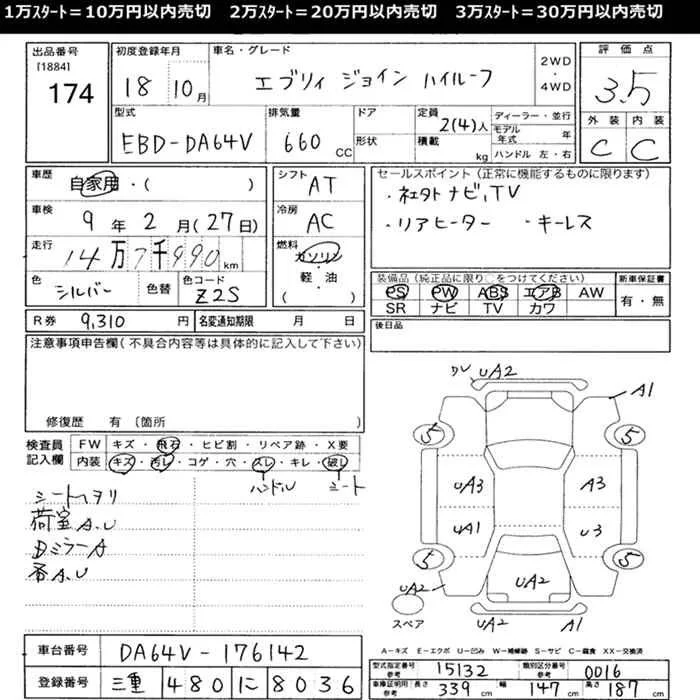 1万スタート=10万円以内売切 2万スタート=20万円以内売切 3万スタート=30万円以内売切
出品番号 [1884] 174
初度登録年月 18 10月
車名・グレード エブリィ ジョイン ハイルーフ
2WD・4WD
評価点 3.5
外装 C 内装 C
型式 EBD-DA64V
排気量 660 CC
ドア 形状
定員 2(4)人
積載 kg
ディーラー・並行
モデル年式 年
ハンドル 左・右
車歴 自家用・( )
車検 9年2月(27日)
走行 14万7千990km
色 シルバー 色替
色コード Z2S
シフト AT
冷房 AC
燃料 ガソリン・軽油 ( )
セールスポイント(正常に機能するものに限ります)
・社外ナビ、TV
・リアヒーター ・キーレス
装備品(純正品に限り○をつけてください)
PS PW ABS エアB AW
SR ナビ TV カワ
新車保証書 有・無
R券 9,310円
名変通知期限 月 日
後日品
注意事項申告欄(不具合内容等は具体的に記入して下さい)
修復歴 有〔箇所 〕
検査員記入欄
FW キズ・飛石・ヒビ割・リペア跡・X要
内装 キズ・汚レ・コゲ・穴・スレ・キレ・破レ
ハンドル シート
シートヘタリ
荷室A.U
DミラーA
A.U
UA2
A1
5 5
UA3 A3
UA1 U3
5 5
UA2 UA2
スペア
UA2 A1
A−キズ E−エクボ U−凹み W−補修跡 S−サビ C−腐食 XX−交換済
車台番号 DA64V-176142
登録番号 三重 480 に 8036
型式指定番号 参考 15132
類別区分番号 参考 0016
車庫証明用 参考 長さ 339cm 幅 147cm 高さ 187cm